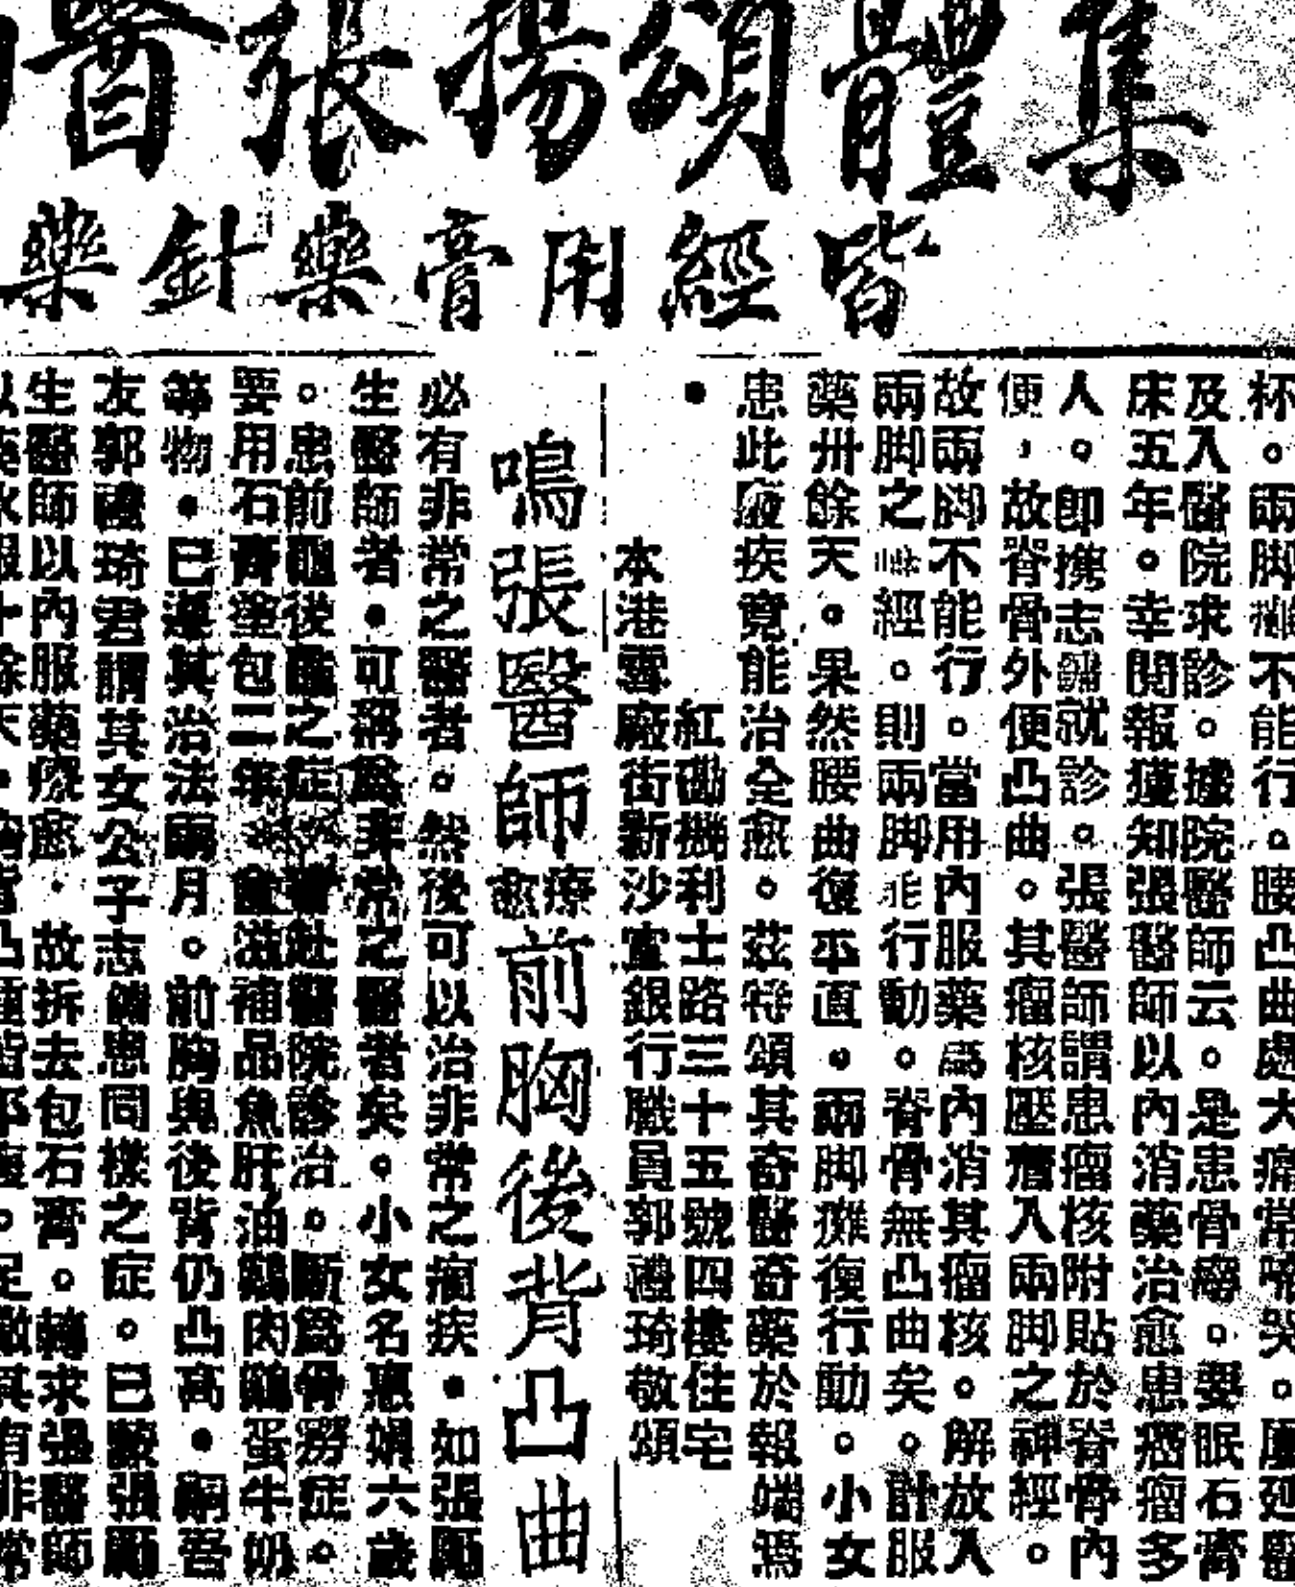 集體頌揚張醫
皆經用膏藥針藥
杯。兩脚攤不能行。腰凸曲處大痛常啼哭。屢延醫
及入醫院求診。據院醫師云。是患骨癆。要眠石膏
床五年。幸閱報獲知張醫師以內消藥治愈患癌瘤多
人。卽携志就診。張醫師謂患瘤核附貼於脊骨內
便，故脊骨外便凸曲。其瘤核壓舊入兩脚之神經。
故兩脚不能行。當用內服藥爲內消其瘤核。解放入
兩脚之經。則兩脚能行動。脊骨無凸曲矣。計服
藥卅餘天。果然腰曲復平直。兩脚攤復行動。小女
患此廢疾竟能治全愈。茲特頌其奇醫奇藥於報端焉
•
紅磡機利士路三十五號四樓住宅
本港雪廠街新沙宣銀行職員郭禮琦敬頌
鳴張醫師療愈前胸後背凸曲
必有非常之醫者。然後可以治非常之痼疾。如張
生醫師者。可稱爲非常之醫者矣。小女名惠娟六歲
。患前龜後龜之症。曾赴醫院診治。斷爲骨癆症。
要用石膏塗包二年。食滋補品魚肝油鷄肉鷄蛋牛奶
等物。已遵其治法兩月。前胸與後背仍凸高。嗣吾
友郭禮琦君謂其女公子志患同樣之症。已蒙張
生醫師以內服藥療愈。故拆去包石膏。轉求張醫師
以藥水服十餘天。凸皆平復。足徵其有非常